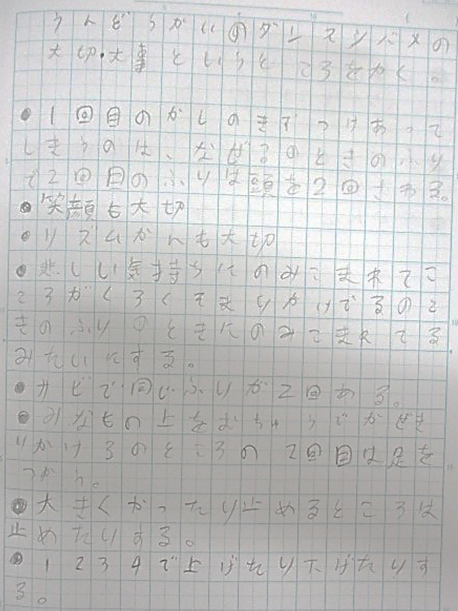 うんどうかいのダンスツバメの
大切・大事というところをかく。
●1回目のかしのきずつけあって
しまうのは、なぜ？のときのふり
で2回目のふりは頭を2回さわる。
●笑顔も大切
●リズムかんも大切
●悲しい気持ちにのみこまれてこ
ころがくろくそまりかけてるのと
きのふりのときにのみこまれてる
みたいにする。
●サビで同じふりが2回ある。
●みなもの上をむちゅうでかぜき
りかけるのところの2回目は足を
つかう。
●大きくやったり止めるところは
止めたりする。
●1234で上げたり下げたりす
る。